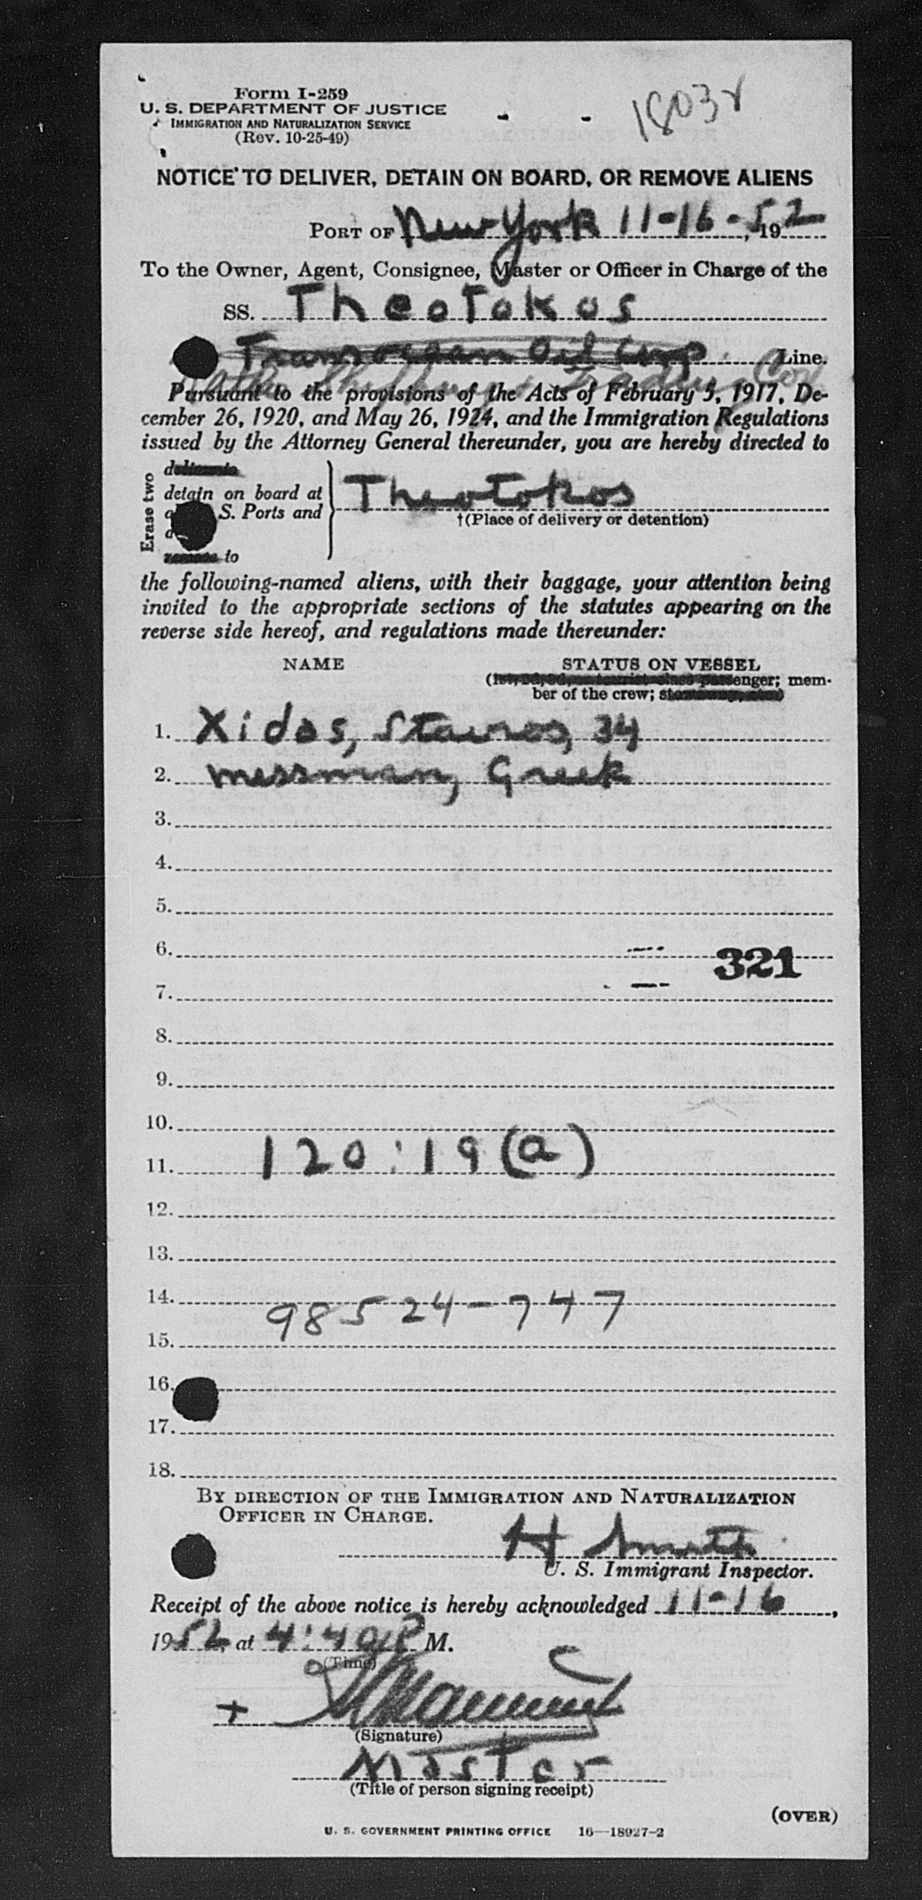 Form I-259
U. S. DEPARTMENT OF JUSTICE
IMMIGRATION AND NATURALIZATION SERVICE
(Rev. 10-25-49)
NOTICE TO DELIVER, DETAIN ON BOARD, OR REMOVE ALIENS
PORT OF New York 11-16-52, 192
To the Owner, Agent, Consignee, Master or Officer in Charge of the
SS. Theotokos
Transocean Oil Corp. Line.
Pursuant to the provisions of the Acts of February 5, 1917, De-
cember 26, 1920, and May 26, 1924, and the Immigration Regulations
issued by the Attorney General thereunder, you are hereby directed to
Erase two
detain on board at Theotokos
S. Ports and
†(Place of delivery or detention)
remove to
the following-named aliens, with their baggage, your attention being
invited to the appropriate sections of the statutes appearing on the
reverse side hereof, and regulations made thereunder:
NAME STATUS ON VESSEL
passenger; mem-
ber of the crew;
1. Xidas, Stavros, 34
2. messman, Greek
3.
4.
5.
6. 321
7.
8.
9.
10.
11. 120:19(a)
12.
13.
14. 98524-747
15.
16.
17.
18.
BY DIRECTION OF THE IMMIGRATION AND NATURALIZATION
OFFICER IN CHARGE.
H Smith
U. S. Immigrant Inspector.
Receipt of the above notice is hereby acknowledged 11-16,
1952, at 4:40 P M.
(Time)
+
(Signature)
Master
(Title of person signing receipt)
(OVER)
U. S. GOVERNMENT PRINTING OFFICE 16—18927-2